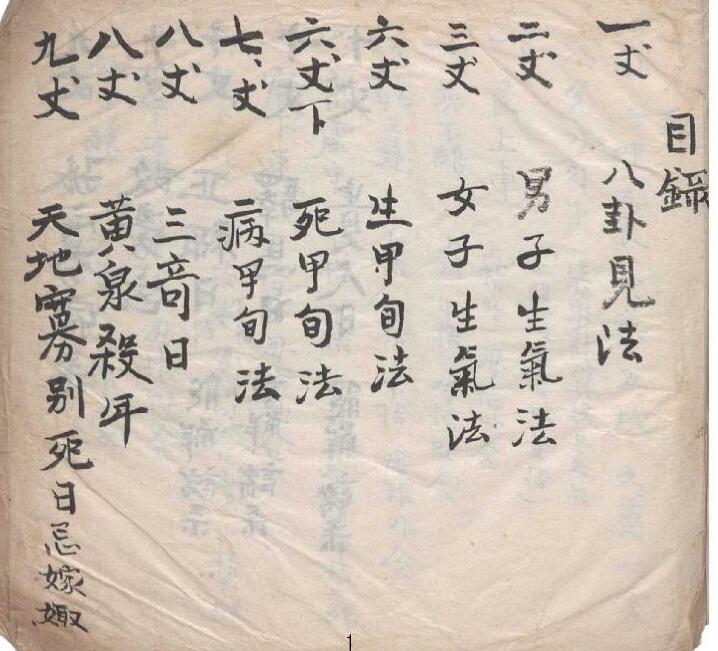 目錄
一丈 八卦見法
二丈 男子生氣法
三丈 女子生氣法
六丈 生甲旬法
六丈下 死甲旬法
七丈 病甲旬法
八丈 三奇日
八丈 黃泉殺年
九丈 天地寡別死日忌嫁娵
1